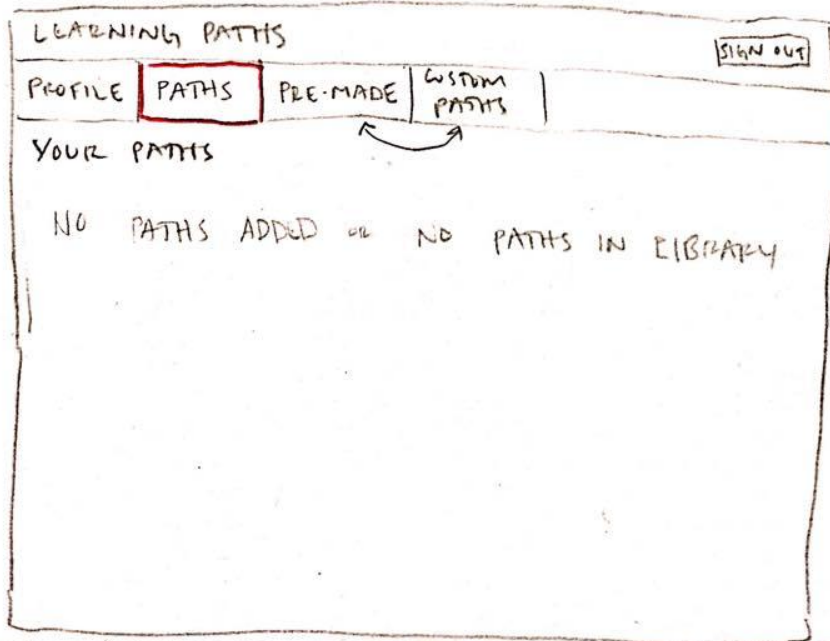 LEARNING PATHS
SIGN OUT
PROFILE
PATHS
PRE-MADE
CUSTOM
PATHS
YOUR PATHS
NO PATHS ADDED OR NO PATHS IN LIBRARY